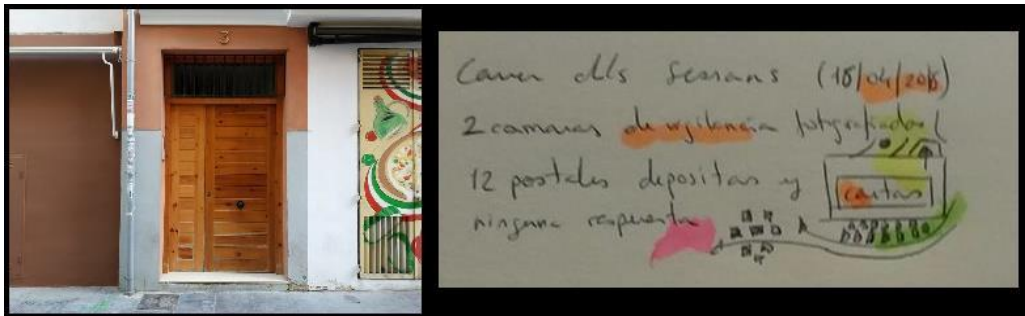 3
Carrer dels Serrans (18/04/2016)
2 camaras de vigilancia fotografiadas
12 postales depositan y
cartas
ninguna respuesta